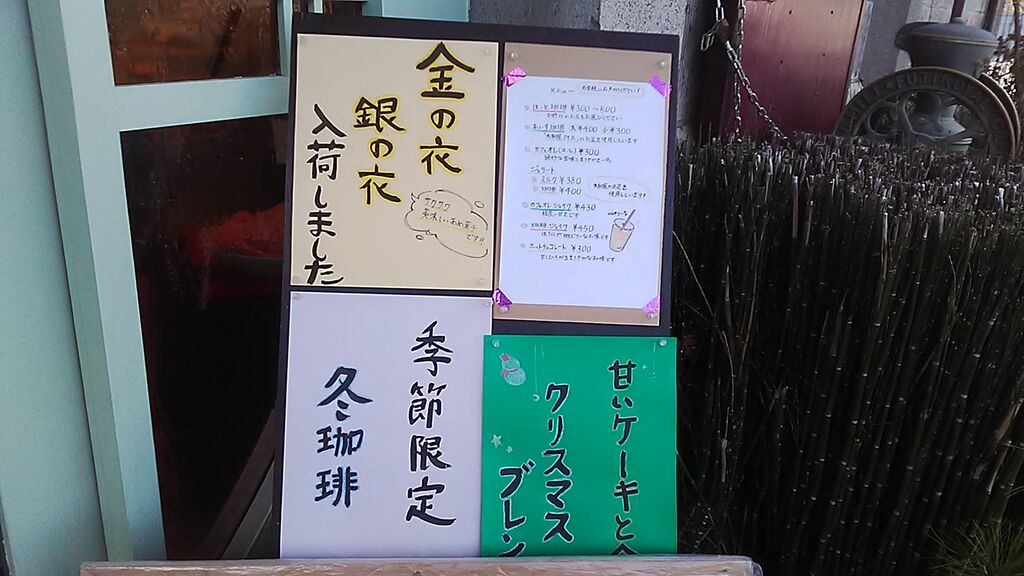 金の衣
銀の衣
入荷しました
サクサク
美味しいお菓子
です!!
メニュー
ほっと珈琲 ¥300～500
あいす珈琲 大¥400 小¥300
カフェオレ(ほっと) ¥300
ジェラート
ミルク ¥380
珈琲 ¥400
使用しています!
カフェオレシェイク ¥430
珈琲シェイク ¥450
ホットチョコレート ¥300
季節限定
冬珈琲
甘いケーキと
クリスマス
ブレン